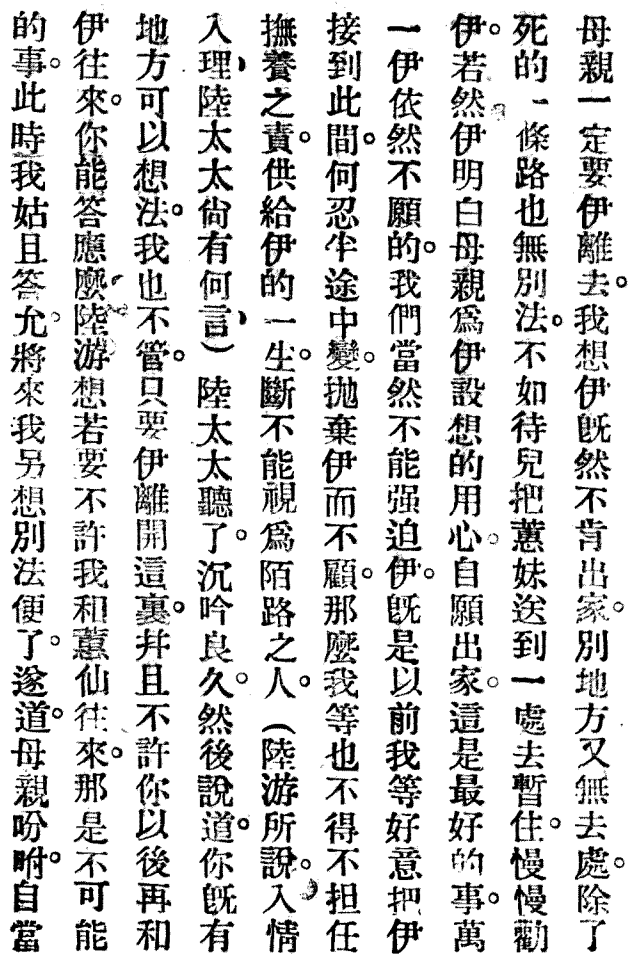 母親一定要伊離去。我想伊旣然不肯出家。別地方又無去處。除了
死的一條路也無別法。不如待兒把蕙妹送到一處去暫住。慢慢勸
伊。若然伊明白母親爲伊設想的用心。自願出家。這是最好的事。萬
一伊依然不願的。我們當然不能强迫伊。旣是以前我等好意把伊
接到此間。何忍半途中變。拋棄伊而不顧。那麼我等也不得不担任
撫養之責。供給伊的一生。斷不能視爲陌路之人。（陸游所說。入情
入理，陸太太尙有何言，）陸太太聽了。沉吟良久。然後說道。你旣有
地方可以想法。我也不管。只要伊離開這裏。幷且不許你以後再和
伊往來。你能答應麼。陸游想若要不許我和蕙仙往來。那是不可能
的事。此時我姑且答允。將來我另想別法便了。遂道。母親吩咐。自當